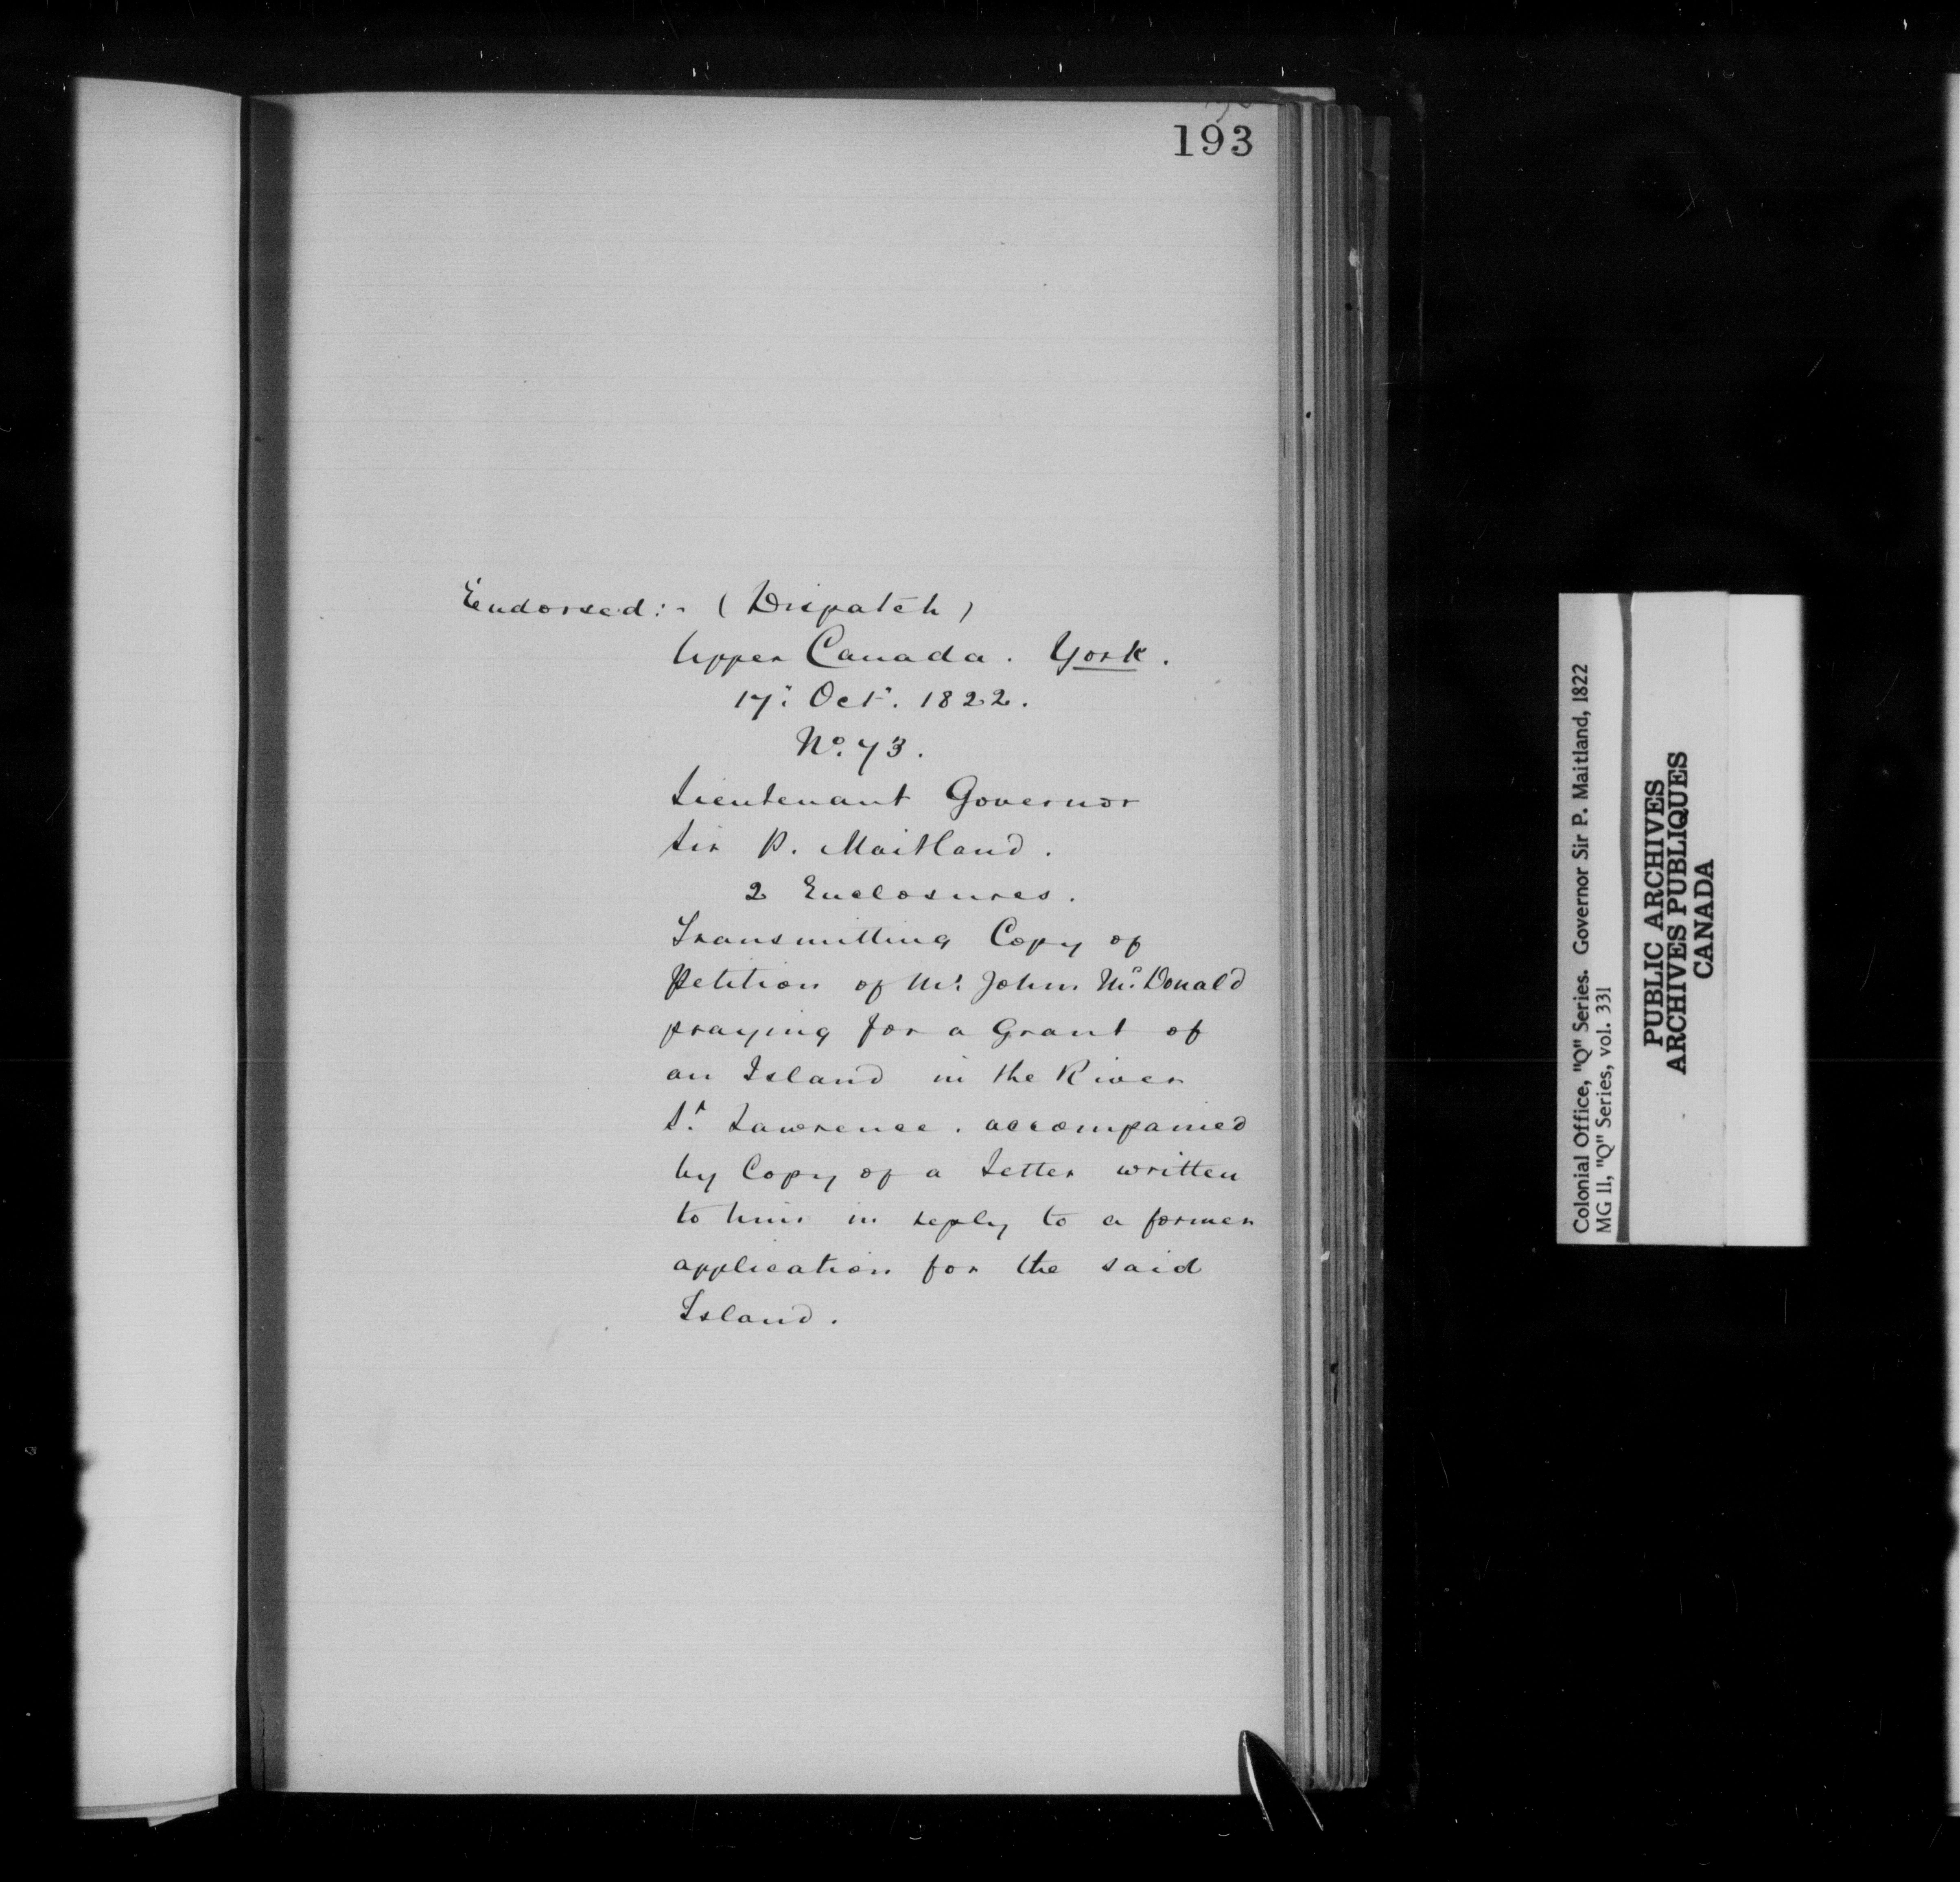 193
Endorsed:- (Dispatch)
Upper Canada. York.
17: Oct. 1822.
No. 73.
Lieutenant Governor
Sir P. Maitland.
2 Enclosures.
Transmitting Copy of
Petition of Mr. John McDonald
praying for a Grant of
an Island in the River
St. Lawrence. accompanied
by Copy of a Letter written
to him in reply to a former
application for the said
Island.
Colonial Office, "Q" Series. Governor Sir P. Maitland, 1822
MG 11, "Q" Series, vol. 331
PUBLIC ARCHIVES
ARCHIVES PUBLIQUES
CANADA